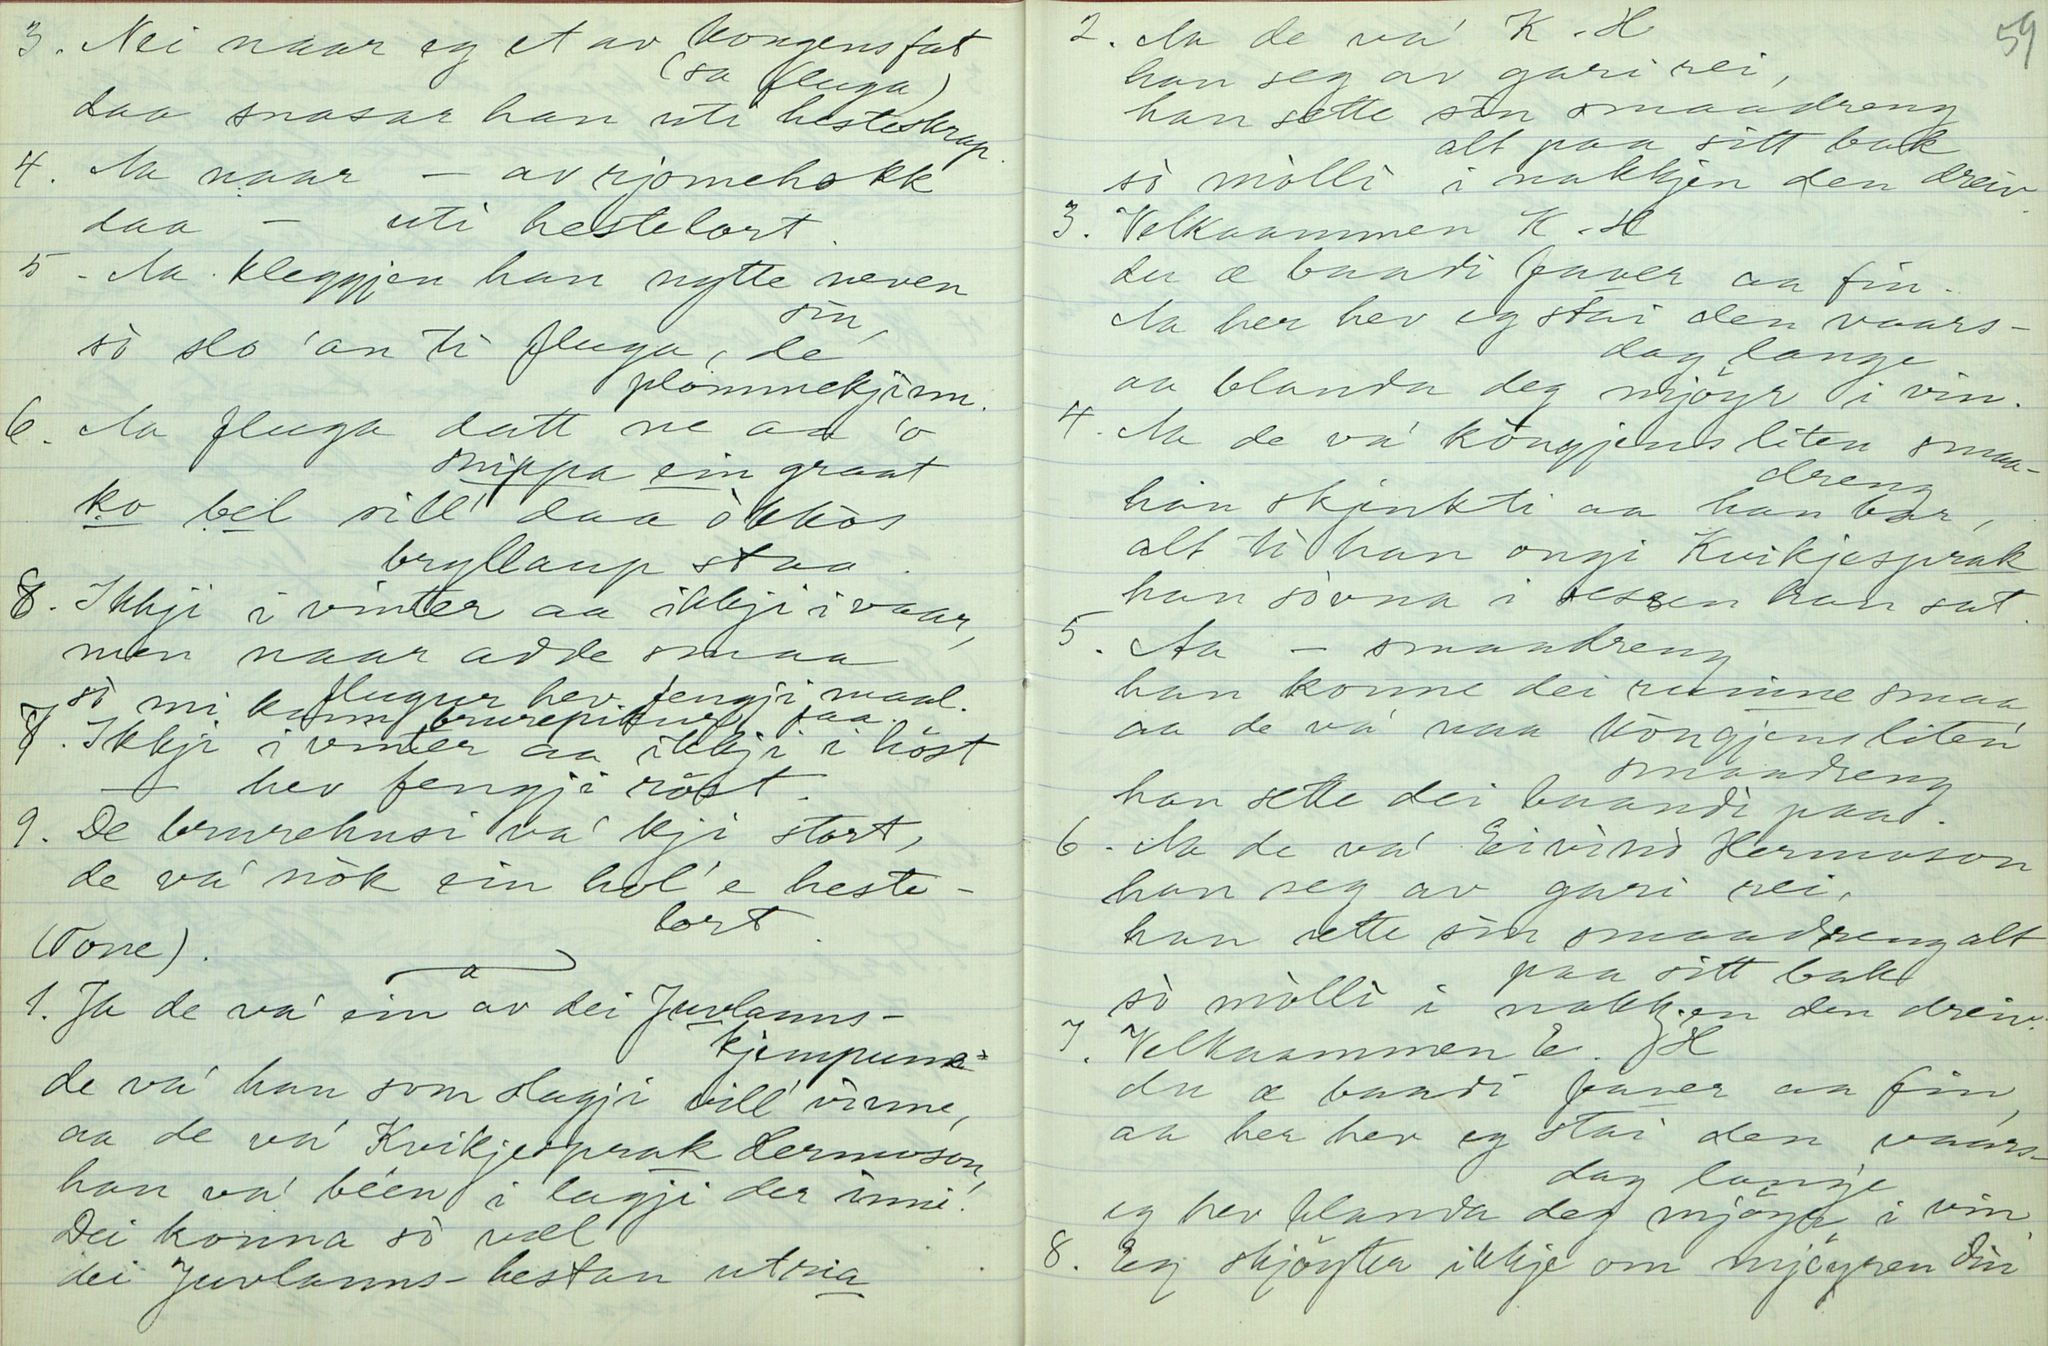 3. Nei naar eg et av kongens fat
(sa fluga)
daa snasar han uti hesteskrap.
4. Aa naar – av rjomehokk
daa – uti hestelort.
5. Aa kleggjen han nytte neven
sin,
sò slo 'an ti fluga, de
plommekjinn.
6. Aa fluga datt ne aa 'o
snippa ein graat
ko bel vill' daa òkkòs
bryllaup staa.
8. Ikkji i vinter aa ikkji i vaar,
men naar adde smaa
flugur hev fengji maal.
sò mi kunn brurepikur faa.
7. Ikkji i vinter aa ikkji i höst
– hev fengji röst.
9. De brurehusi va' kji stort,
de va' nòk ein hol'e heste-
lort.
(Tone).
a
1. Ja de va' ein av dei Juvlanns-
kjempune
de va' han som slagji vill' vinne,
aa de va' Kvikjesprak Hermoson,
han va' bèen i lagji der inni.
Dei konna sò vel
dei Juvlanns-hestan utria
59
2. Aa de va' K. H
han seg av gari rei,
han sette sin smaadreng
alt paa sitt bak
sò mòlli i nakkjen den dreiv.
3. Velkaammen K. H
du æ baadi faver aa fin.
Aa her hev eg stai den vaars-
dag lange
aa blanda deg mjöyr i vin.
4. Aa de va' kòngjens liten smaa-
dreng
han skjenkti aa han bar,
alt ti han ongi Kvikjesprak
han sòvna i sessen han sat.
5. Aa – smaadreng
han konne dei runine smaa
aa de va' naa kòngjens liten
smaadreng
han sette dei baandi paa.
6. Aa de va' Eivind Hermoson
han seg av gari rei,
han sette sin smaadreng alt
paa sitt bak
sò mòlli i nakkjen den dreiv.
7. Velkaammen E. H
du æ baadi faver aa fin,
aa her hev eg stai den vaars-
dag lange
eg hev blanda deg mjöyr i vin
8. Eg skjöyter ikkje om mjöyren din